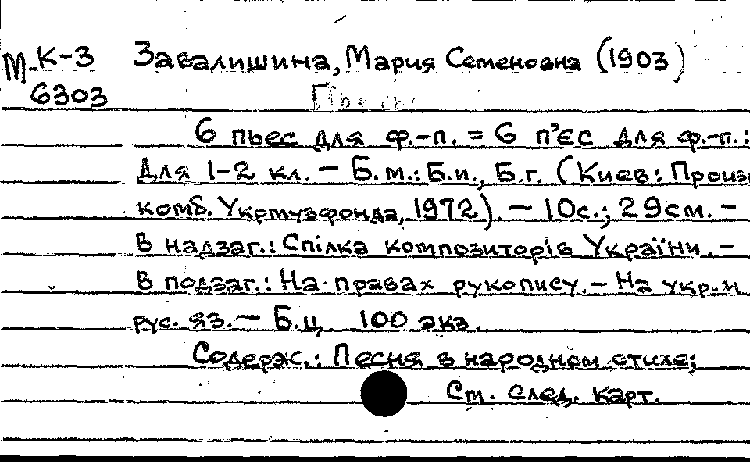 М К-3 Завалишина, Мария Семеновна (1903)
6303
6 пьес для ф.-п. = 6 п'єс для ф.-п.:
Для 1-2 кл. - Б.м.: Б.и., Б.г. (Киев: Произв
комб. Укрмузфонда, 1972). - 10с.; 29см. -
В надзаг.: Спілка композиторів України. -
В подзаг.: На правах рукопису. - На укр. и
рус. яз. - Б.ц. 100 экз.
Содерж.: Песня в народном стиле;
См. след. карт.